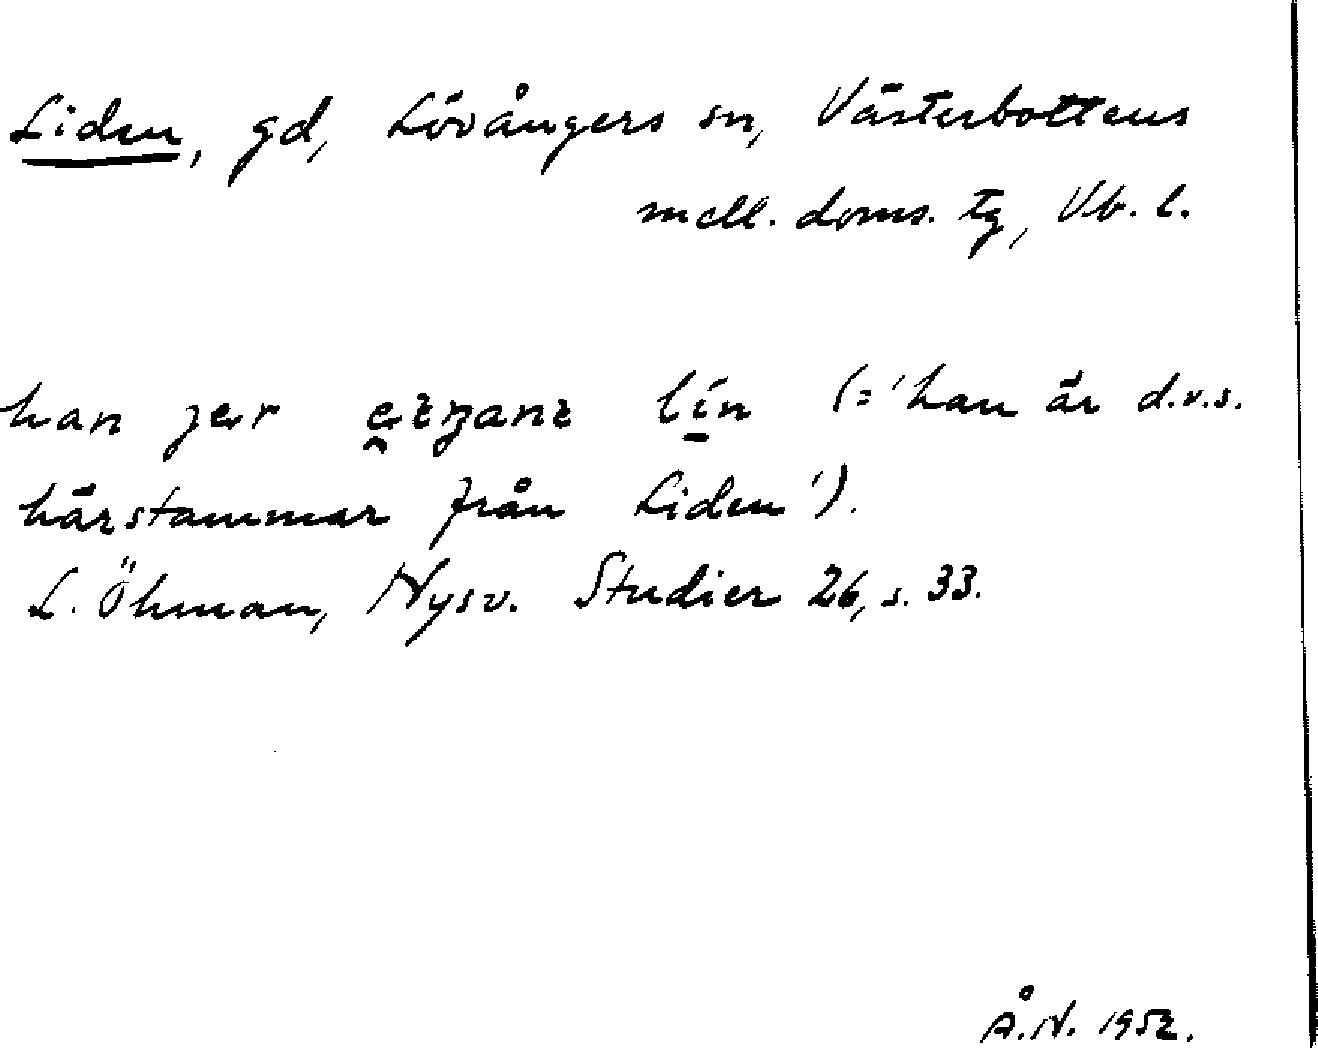 Liden, gd, Lövångers sn, Västerbottens
mell. doms. tg, Vb. l.
han jer lin (='han är d.v.s.
härstammar från Liden').
L. Öhman, Nysv. Studier 26, s. 33.
Å.N. 1952.